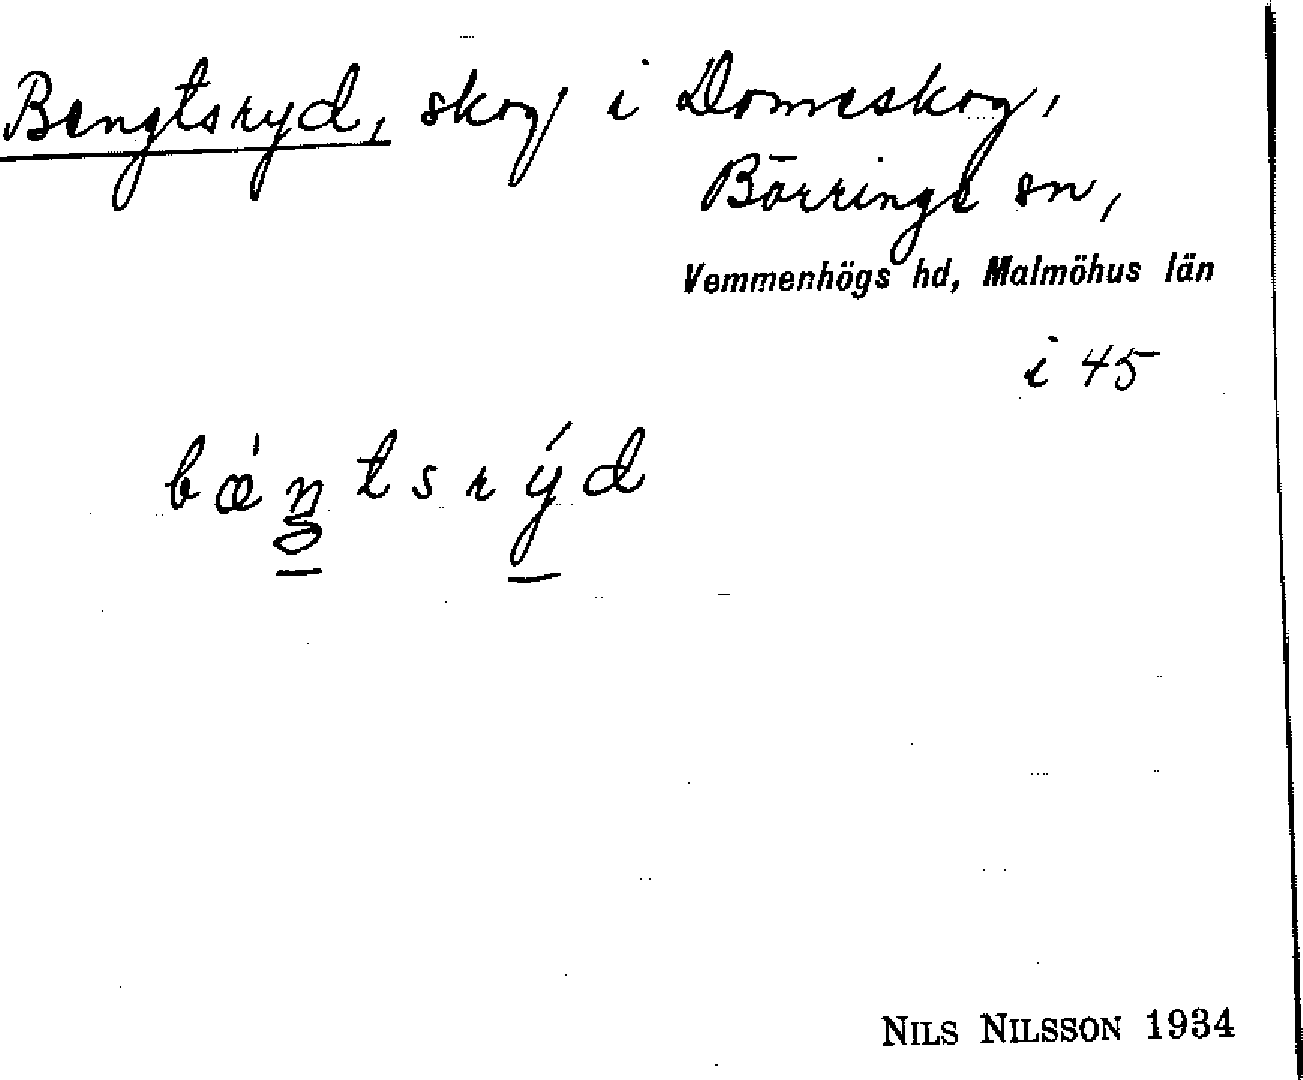 Bengtsryd, skog i Domeskog,
Börringe sn,
Vemmenhögs hd, Malmöhus län
i 45
bǽŋtsrýd
NILS NILSSON 1934